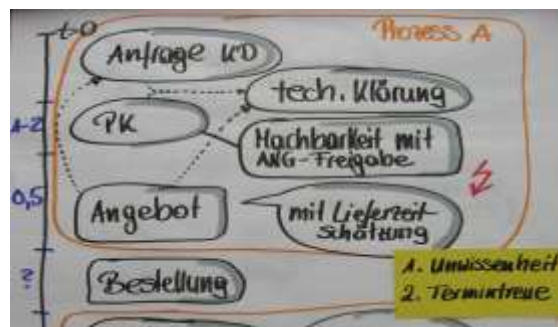 t0
Prozess A
Anfrage KD
tech. Klärung
1-2
PK
Machbarkeit mit
ANG-Freigabe
0,5
Angebot
mit Lieferzeit-
schätzung
Bestellung
1. Unwissenheit
2. Termintreue